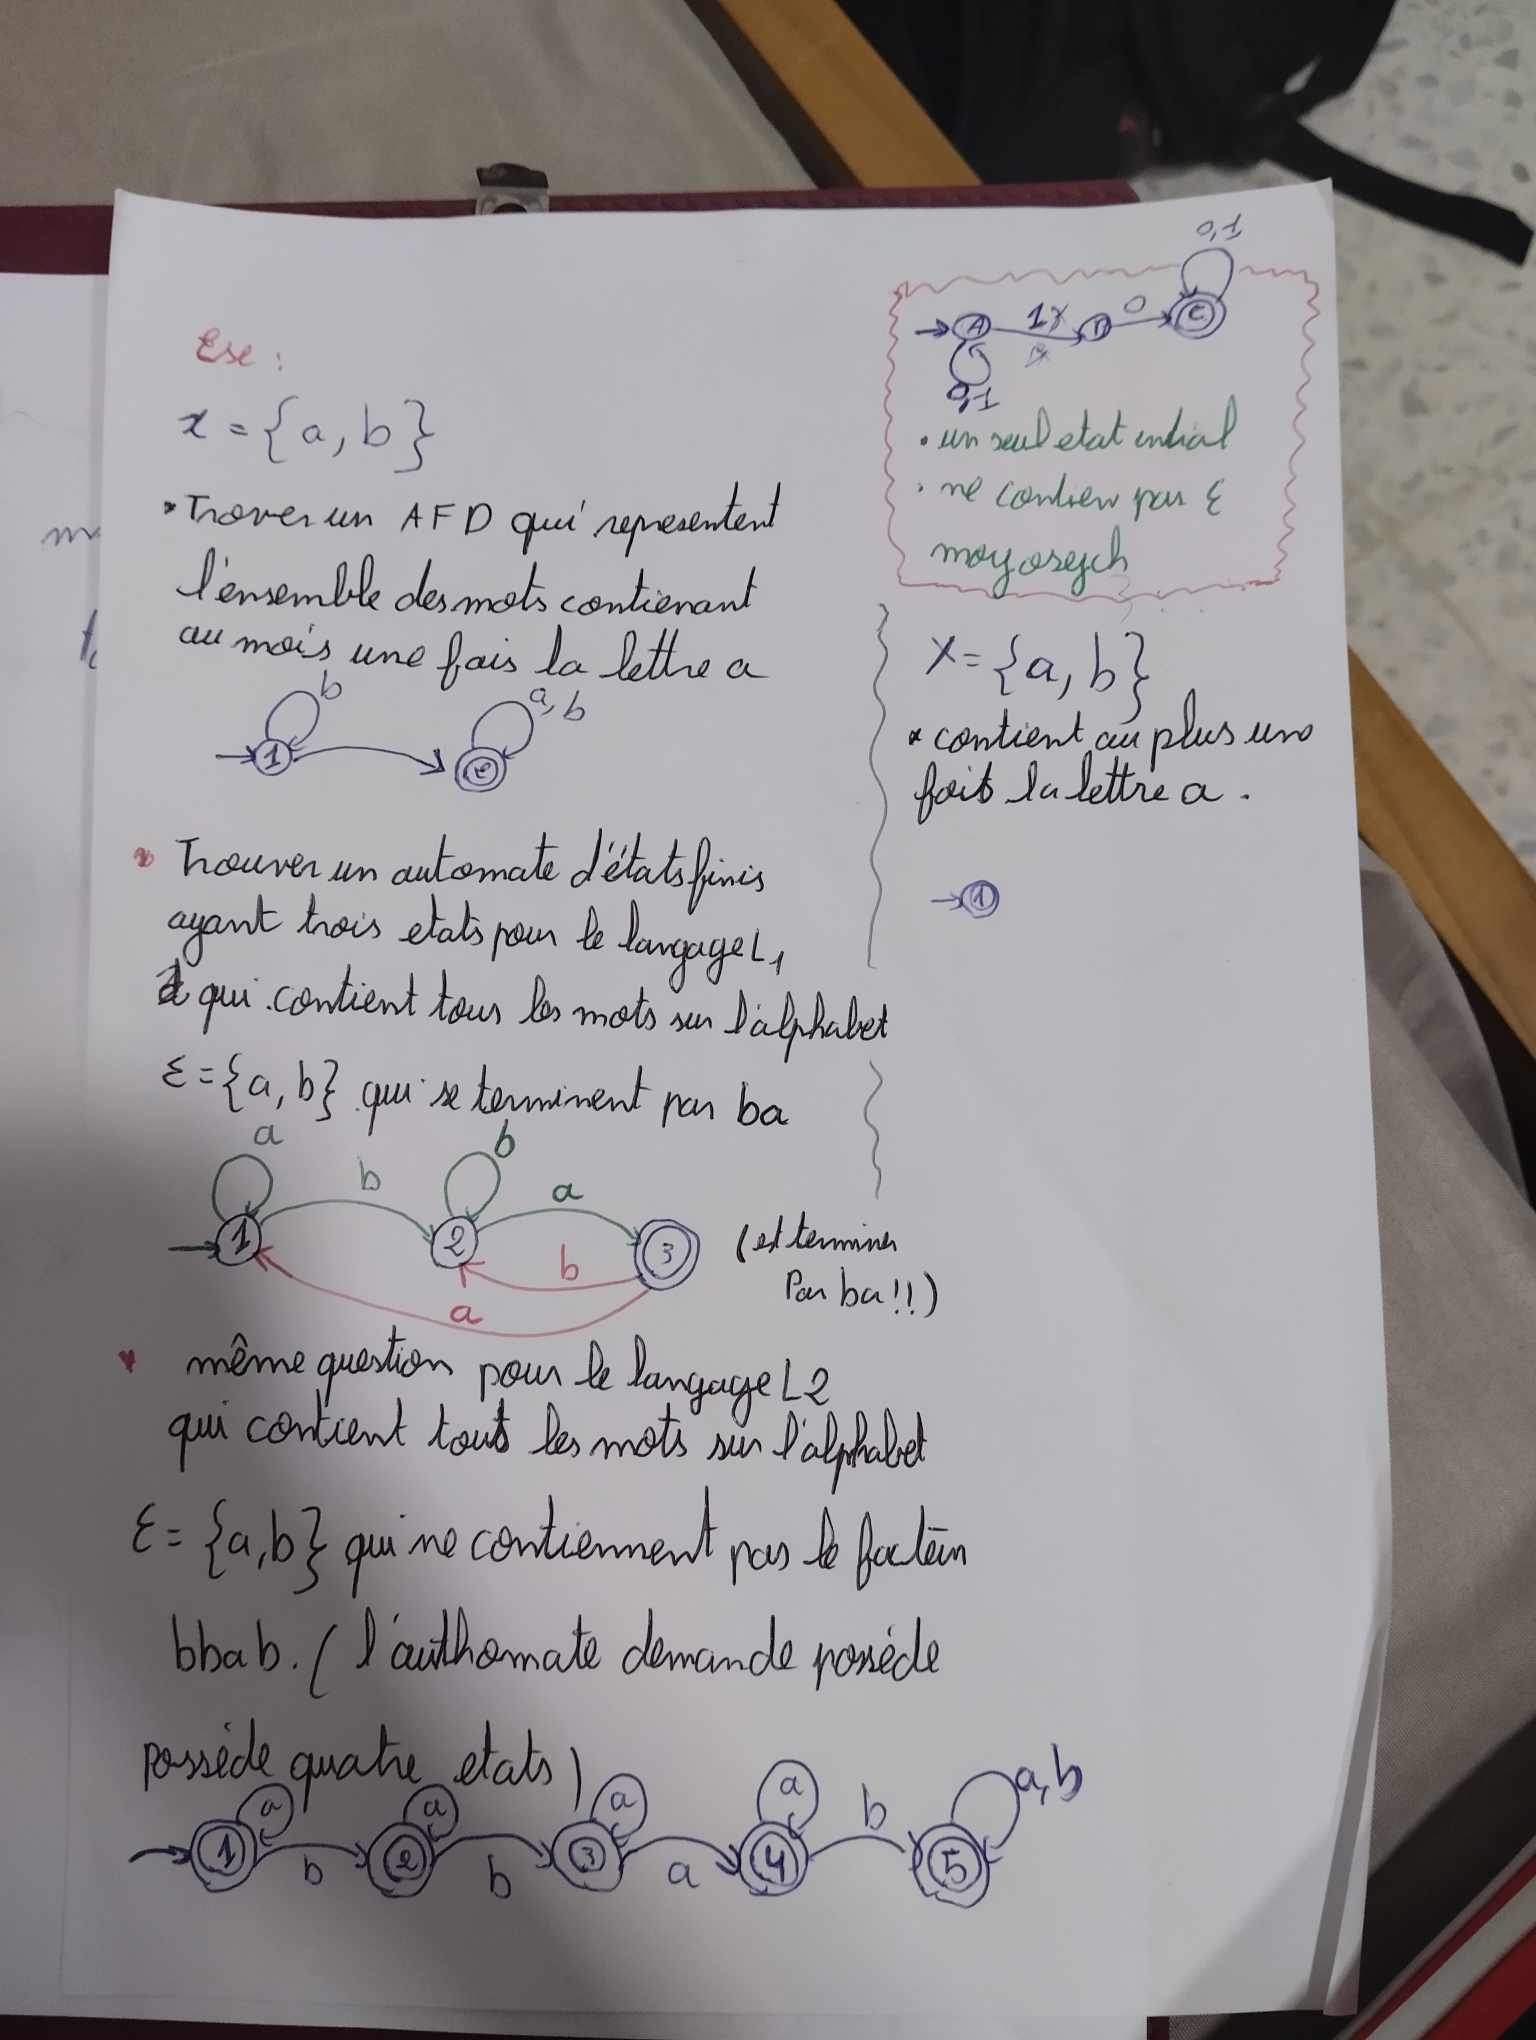 Exe :
x = {a, b}
• Trover un AFD qui representent
l'ensemble des mots contienant
au mois une fais la lettre a
b
a, b
1
• Trouver un automate d'étatsfinis
ayant trois etats pour le langage L1
qui contient tous les mots sur l'alphabet
Ɛ = {a, b} qui se terminent par ba
a
b
b
a
1
2
3
b
a
(est terminer
Par ba !!)
même question pour le langage L2
qui contient tous les mots sur l'alphabet
Ɛ = {a,b} qui ne contiennent pas le facteur
bbab. ( l'authomate demande possède
possède quatre etats)
a
a
a
a
a,b
1
2
3
4
5
b
b
a
b
0,1
A
1
0
C
0,1
• un seul etat intial
• ne contien pas Ɛ
X = {a, b}
* contient au plus une
fois la lettre a .
1